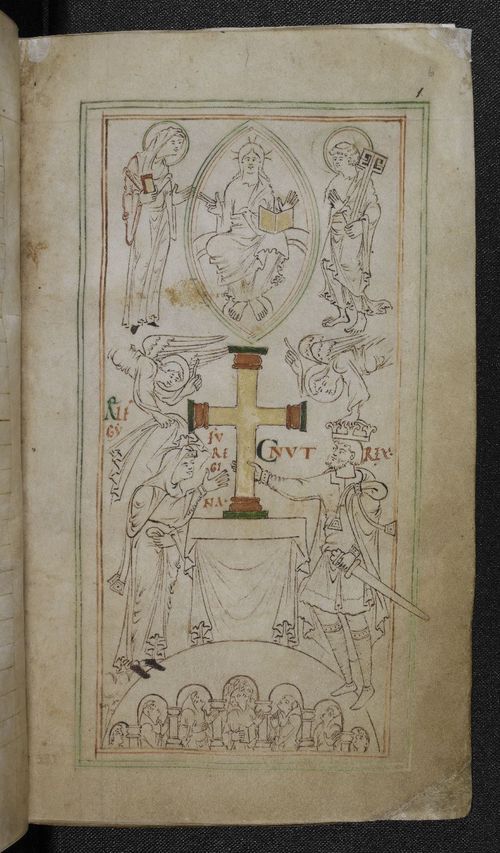 1
ÆLF
GY
FU
RE
GI
NA·
CNUT
REX·